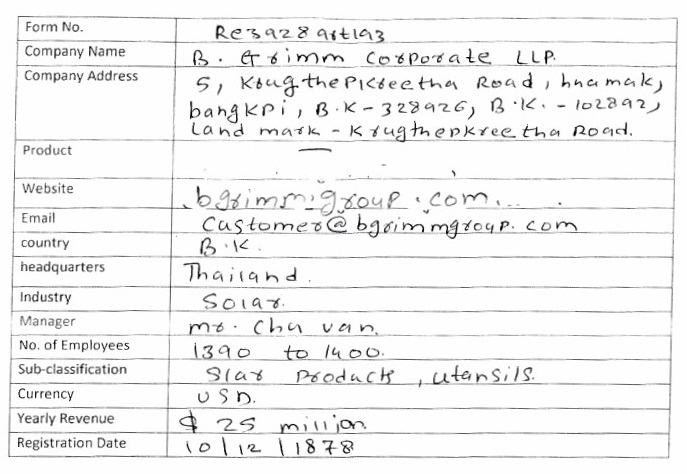 Form No. Re39289rt193
Company Name B. Grimm Corporate LLP.
Company Address 5, Krugthepkreetha Road, huamak,
bangkpi, B.K-328926, B.K.-102892,
Land mark - Krugthepkreetha Road.
Product —
Website bgrimmgroup.com
Email Customer@bgrimmgroup.com
country B.K.
headquarters Thailand.
Industry Solar.
Manager mr. Chu van.
No. of Employees 1390 to 1400.
Sub-classification Slar Products, utansils.
Currency USD.
Yearly Revenue $ 25 million
Registration Date 10/12/1878